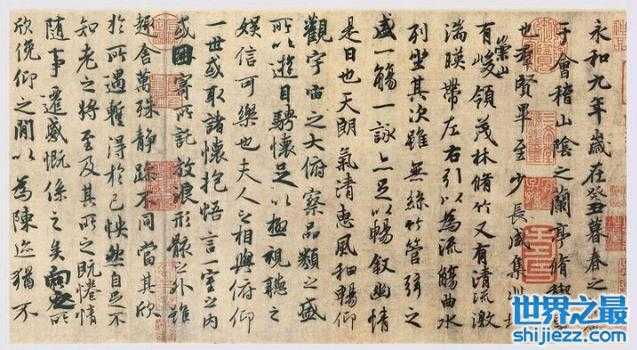 永和九年歲在癸丑暮春之
于會稽山陰之蘭亭脩禊
也群賢畢至少長咸集
有崇山峻領茂林脩竹又有清流激
湍暎帶左右引以為流觴曲水
列坐其次雖無絲竹管弦之
盛一觴一詠亦足以暢叙幽情
是日也天朗氣清惠風和暢仰
觀宇宙之大俯察品類之盛
所以遊目騁懷足以極視聽之
娛信可樂也夫人之相與俯仰
一世或取諸懷抱悟言一室之內
或因寄所託放浪形骸之外雖
趣舍萬殊靜躁不同當其欣
於所遇暫得於己怏然自足不
知老之將至及其所之既惓情
隨事遷感慨係之矣向之所
欣俛仰之閒以為陳迹猶不
世界之最
shijiezz.com